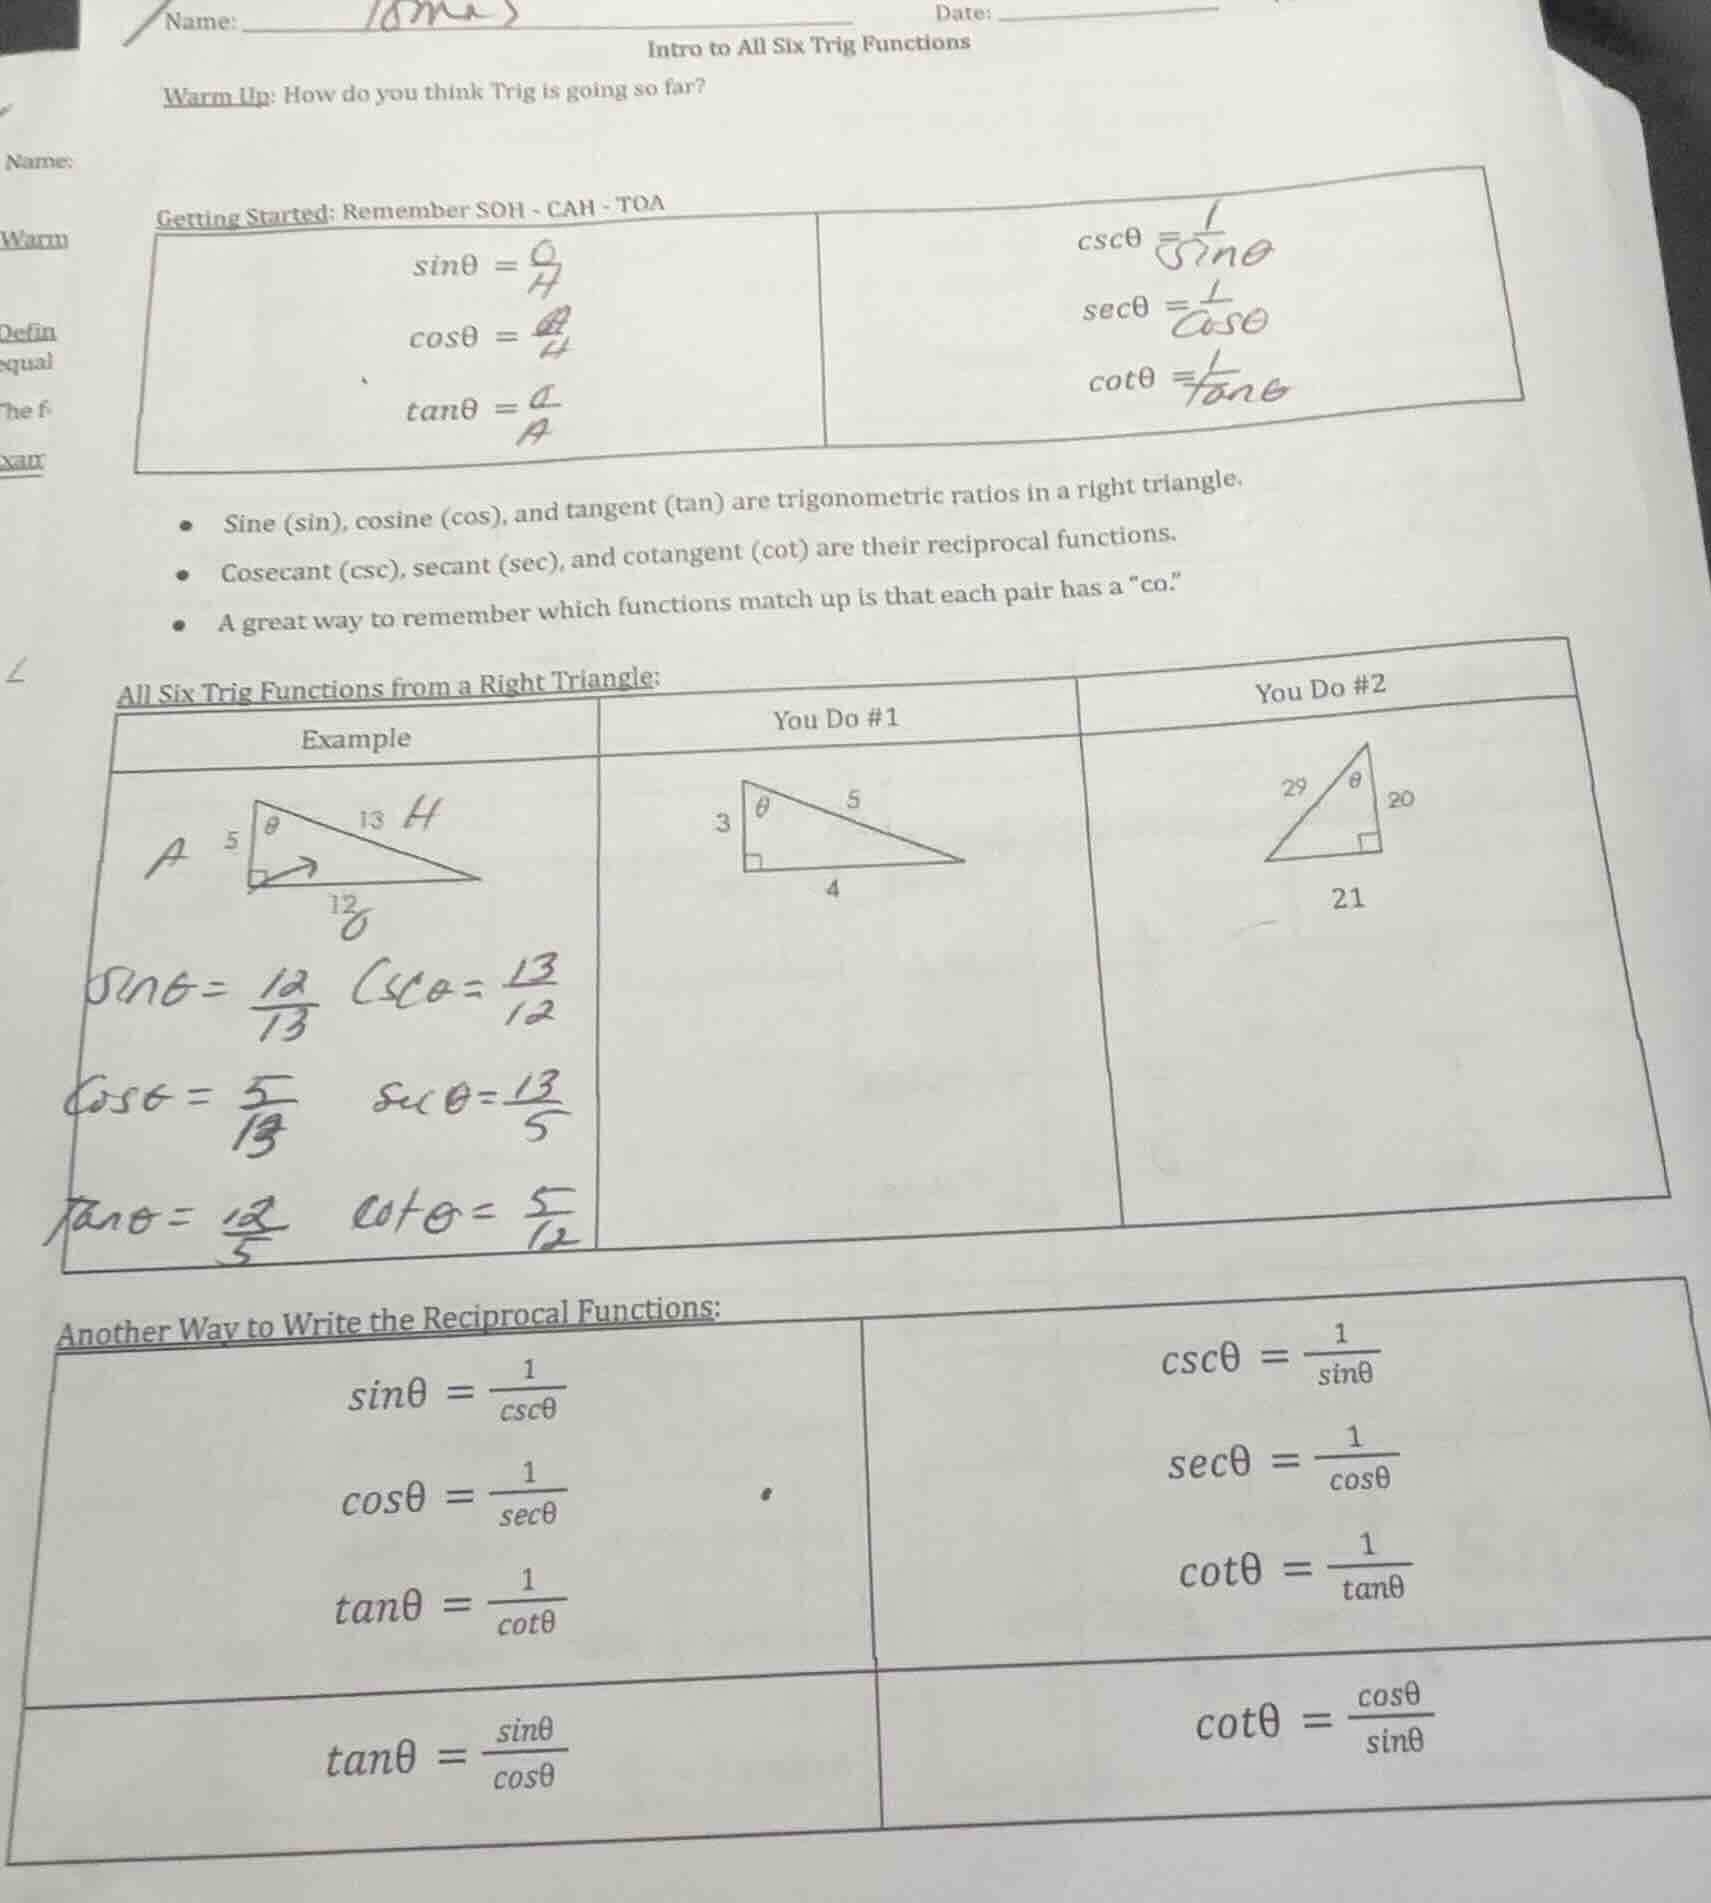 Name: Tomas Date:
Intro to All Six Trig Functions
Warm Up: How do you think Trig is going so far?
Name:
Getting Started: Remember SOH - CAH - TOA
Warm
sinθ = O/H cscθ = 1/sinθ
cosθ = A/H secθ = 1/cosθ
tanθ = O/A cotθ = 1/tanθ
Defin
equal
The f
xam
• Sine (sin), cosine (cos), and tangent (tan) are trigonometric ratios in a right triangle.
• Cosecant (csc), secant (sec), and cotangent (cot) are their reciprocal functions.
• A great way to remember which functions match up is that each pair has a “co.”
All Six Trig Functions from a Right Triangle:
Example You Do #1 You Do #2
A 5 θ 13 H
12
O
3 θ 5
4
29 θ 20
21
sinθ = 12/13 cscθ = 13/12
cosθ = 5/13 secθ = 13/5
tanθ = 12/5 cotθ = 5/12
Another Way to Write the Reciprocal Functions:
sinθ = 1/cscθ cscθ = 1/sinθ
cosθ = 1/secθ secθ = 1/cosθ
tanθ = 1/cotθ cotθ = 1/tanθ
tanθ = sinθ/cosθ cotθ = cosθ/sinθ